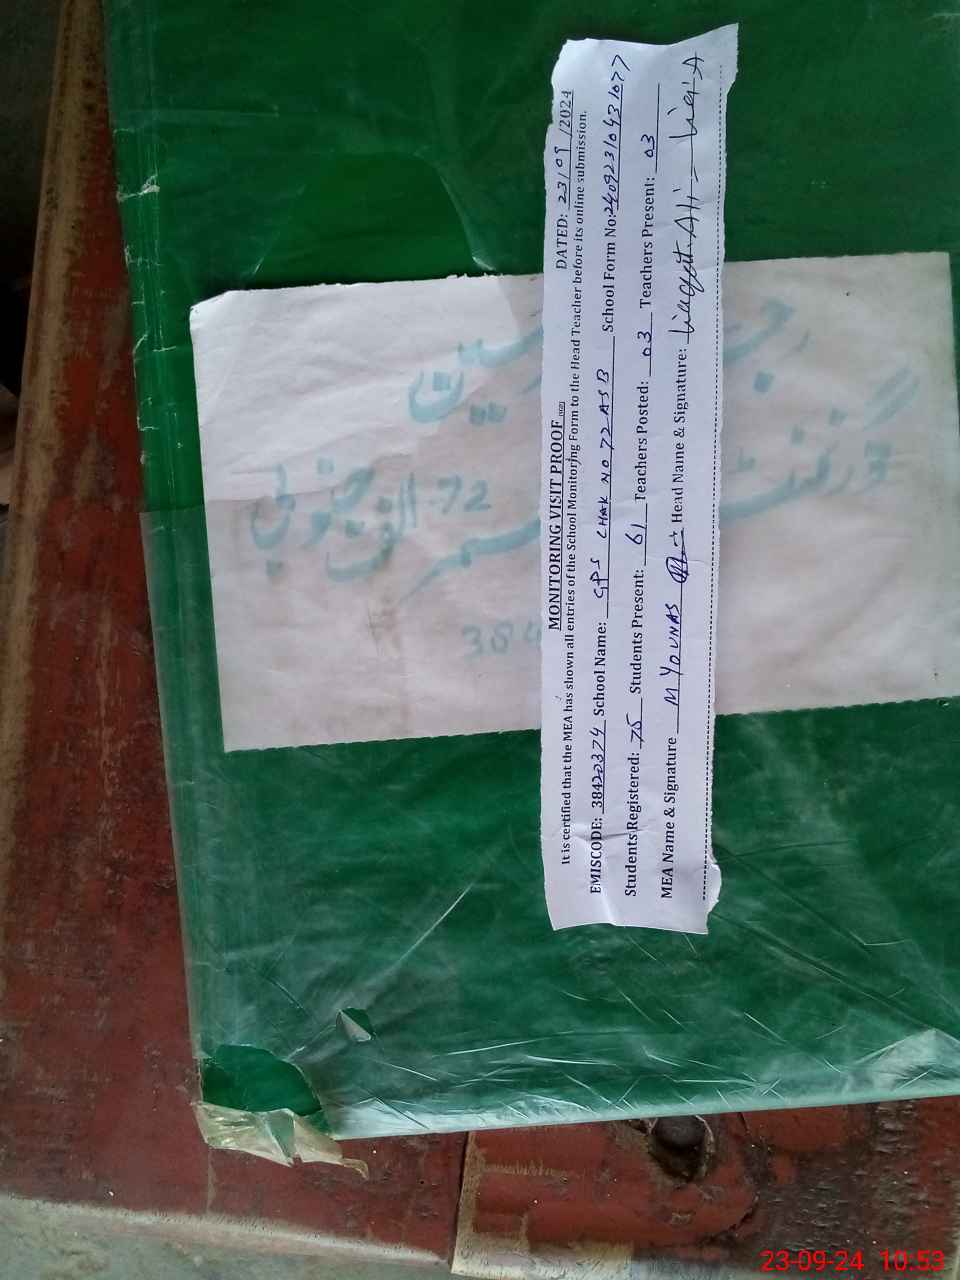 MONITORING VISIT PROOF DATED: 23/09/2024
It is certified that the MEA has shown all entries of the School Monitoring Form to the Head Teacher before its online submission.
EMISCODE: 38420374 School Name: GPS CHAK NO 72 ASB School Form No: 24092310431077
Students Registered: 75 Students Present: 61 Teachers Posted: 03 Teachers Present: 03
MEA Name & Signature M YOUNAS Head Name & Signature: Liaqat Ali
72 الف جنوبی
384
23-09-24 10:53